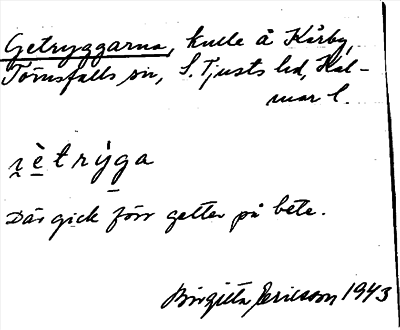 Getryggarna, kulle å Kårby,
Törnsfalls sn, S. Tjusts hd, Kal-
mar l.
ɀètrýga
Där gick förr getter på bete.
Birgitta Ericsson 1943